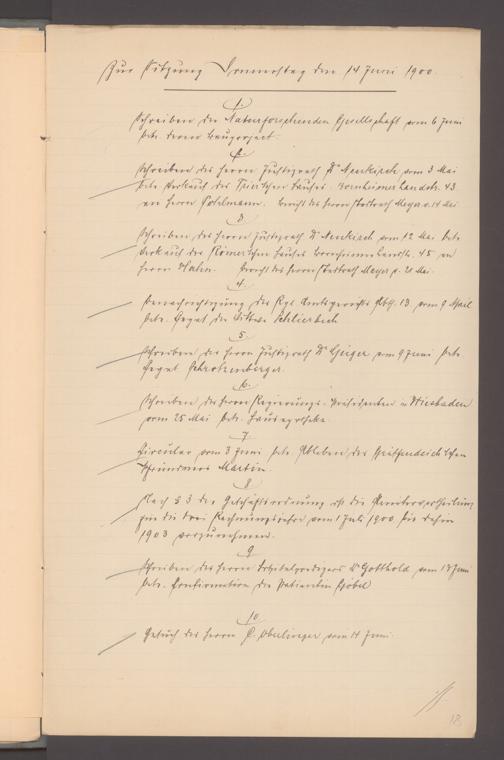 Zur Sitzung Donnerstag den 14 Juni 1900.
1.
Schreiben der Naturforschenden Gesellschaft vom 6 Juni
betr. deren Bauproject.
2.
Schreiben des Herrn Justizrath Dr Neukirch vom 3 Mai
betr. Verkauf des Hauses Bornheimer Landstr. 43
an Herrn Bericht des Herrn Stadtrath Meyer v. 14 Mai
3.
Schreiben des Herrn Justizrath Dr Neukirch vom 12 Mai betr.
Verkauf des Hauses Bornheimer Landstr. 45 an
Herrn Hahn. Bericht des Herrn Stadtrath Meyer v. 21 Mai.
4.
Benachrichtigung des Kgl. Amtsgerichts Abth. 13 vom 9 April
betr. Legat der Wittwe Schlierbach
5.
Schreiben des Herrn Justizrath Dr Geiger vom 9 Juni betr.
Legat Schrotzenberger.
6.
Schreiben des Herrn Regierungs-Präsidenten in Wiesbaden
vom 25 Mai betr. Hausapotheke.
7
Circular vom 3 Juni betr. Ableben des
Martin.
8
Nach § 3 der Geschäftsordnung ist die Aemtervertheilung
für die drei Rechnungsjahre vom 1 Juli 1900 bis dahin
1903 vorzunehmen.
9
Schreiben des Herrn Hospitalpredigers Dr Gotthold vom 13 Juni
betr. Confirmation der Patientin Göbel
10
Gesuch des Herrn C. Oberlinger vom 14 Juni.
18